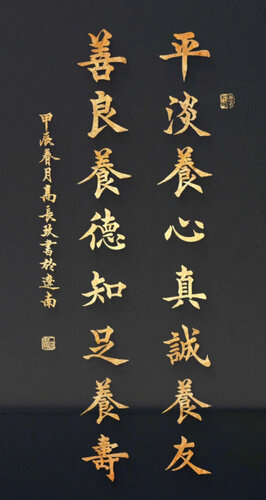 平淡養心真誠養友
善良養德知足養壽
甲辰春月高長玫書於遼南